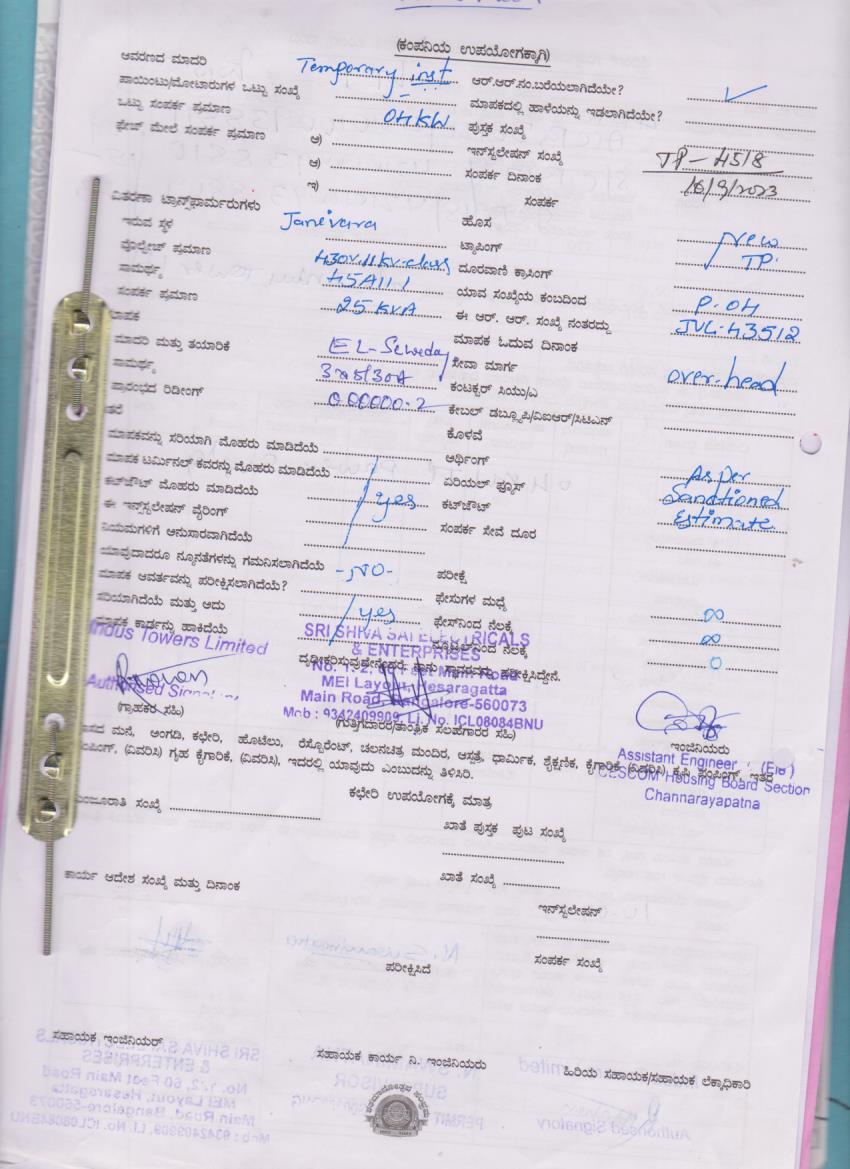 (ಕಂಪನಿಯ ಉಪಯೋಗಕ್ಕಾಗಿ)
ಆವರಣದ ಮಾದರಿ Temporary inst ಆರ್.ಆರ್.ನಂ.ಬರೆಯಲಾಗಿದೆಯೇ? ✓
ಪಾಯಿಂಟು/ಮೋಟಾರುಗಳ ಒಟ್ಟು ಸಂಖ್ಯೆ ಮಾಪಕದಲ್ಲಿ ಹಾಳೆಯನ್ನು ಇಡಲಾಗಿದೆಯೇ?
ಒಟ್ಟು ಸಂಪರ್ಕ ಪ್ರಮಾಣ 04KW ಪುಸ್ತಕ ಸಂಖ್ಯೆ
ಫೇಜ್ ಮೇಲೆ ಸಂಪರ್ಕ ಪ್ರಮಾಣ ಅ) ಇನ್‌ಸ್ಟಲೇಷನ್ ಸಂಖ್ಯೆ TP-4518
ಆ) ಸಂಪರ್ಕ ದಿನಾಂಕ 16/9/2023
ಇ) ಸಂಪರ್ಕ
ವಿತರಣಾ ಟ್ರಾನ್ಸ್‌ಫಾರ್ಮರುಗಳು ಹೊಸ New
ಇರುವ ಸ್ಥಳ Janivara ಟ್ಯಾಪಿಂಗ್ TP.
ವೊಲ್ಟೇಜ್ ಪ್ರಮಾಣ 430V.11kv-class ದೂರವಾಣಿ ಕ್ರಾಸಿಂಗ್
ಸಾಮರ್ಥ್ಯ ಯಾವ ಸಂಖ್ಯೆಯ ಕಂಬದಿಂದ P.04
ಸಂಪರ್ಕ ಪ್ರಮಾಣ 25 KVA ಈ ಆರ್. ಆರ್. ಸಂಖ್ಯೆ ನಂತರದ್ದು JVL-43512
ಮಾಪಕ ಓದುವ ದಿನಾಂಕ
ಮಾದರಿ ಮತ್ತು ತಯಾರಿಕೆ ಸೇವಾ ಮಾರ್ಗ over-head
ಸಾಮರ್ಥ್ಯ ಕಂಟಕ್ಟರ್ ಸಿಯು/ಎ
ಪ್ರಾರಂಭದ ರಿಡೀಂಗ್ 000000.2 ಕೇಬಲ್ ಡಬ್ಲ್ಯೂಪಿ/ವಿಐಆರ್/ಸಿಟಿಎಸ್
ಕೊಳವೆ
ಮಾಪಕವನ್ನು ಸರಿಯಾಗಿ ಮೊಹರು ಮಾಡಿದೆಯೆ ಆರ್ಥಿಂಗ್
ಮಾಪಕ ಟರ್ಮಿನಲ್ ಕವರನ್ನು ಮೊಹರು ಮಾಡಿದೆಯೆ ಏರಿಯಲ್ ಫ್ಯೂಸ್ As per
ಕಟ್‌ಔಟ್ ಮೊಹರು ಮಾಡಿದೆಯೆ yes ಕಟ್‌ಔಟ್ Sanctioned
ಈ ಇನ್‌ಸ್ಟಲೇಷನ್ ವೈರಿಂಗ್ ಸಂಪರ್ಕ ಸೇವೆ ದೂರ Estimate
ನಿಯಮಗಳಿಗೆ ಅನುಸಾರವಾಗಿದೆಯೆ
ಯಾವುದಾದರೂ ನ್ಯೂನತೆಗಳನ್ನು ಗಮನಿಸಲಾಗಿದೆಯೆ -NO- ಪರೀಕ್ಷೆ
ಮಾಪಕ ಆವರ್ತವನ್ನು ಪರೀಕ್ಷಿಸಲಾಗಿದೆಯೆ? ಫೇಸುಗಳ ಮಧ್ಯೆ ∞
ಸರಿಯಾಗಿದೆಯೆ ಮತ್ತು ಅದು yes ಫೇಸ್‌ನಿಂದ ನೆಲಕ್ಕೆ ∞
ಮಾಪಕ ಕಾರ್ಡನ್ನು ಹಾಕಿದೆಯೆ ನ್ಯೂಟ್ರಲ್‌ನಿಂದ ನೆಲಕ್ಕೆ 0
Indus Towers Limited
SRI SHIVA SAI ELECTRICALS
& ENTERPRISES
ದೃಢೀಕರಿಸುವುದೇನೆಂದರೆ ನಾನು ಸ್ಥಾವರವನ್ನು ಪರೀಕ್ಷಿಸಿದ್ದೇನೆ.
MEI Layout, Hesaragatta
Main Road, Bangalore-560073
Mob : 9342409909, Li. No. ICL08084BNU
Authorised Signatory
(ಗ್ರಾಹಕರ ಸಹಿ) (ಗುತ್ತಿಗೆದಾರರ/ತಾಂತ್ರಿಕ ಸಲಹೆಗಾರರ ಸಹಿ) ಇಂಜಿನಿಯರು
Assistant Engineer (Ele)
CESCOM Housing Board Section
Channarayapatna
ವಾಸದ ಮನೆ, ಅಂಗಡಿ, ಕಛೇರಿ, ಹೊಟೆಲು, ರೆಸ್ಟೊರೆಂಟ್, ಚಲನಚಿತ್ರ ಮಂದಿರ, ಆಸ್ಪತ್ರೆ, ಧಾರ್ಮಿಕ, ಶೈಕ್ಷಣಿಕ, ಕೈಗಾರಿಕೆ (ವಿವರಿಸಿ) ಕೃಷಿ ಪಂಪಿಂಗ್, ಇತರ
ಪಂಪಿಂಗ್, (ವಿವರಿಸಿ) ಗೃಹ ಕೈಗಾರಿಕೆ, (ವಿವರಿಸಿ), ಇದರಲ್ಲಿ ಯಾವುದು ಎಂಬುದನ್ನು ತಿಳಿಸಿರಿ.
ಕಛೇರಿ ಉಪಯೋಗಕ್ಕೆ ಮಾತ್ರ
ಮಂಜೂರಾತಿ ಸಂಖ್ಯೆ ಖಾತೆ ಪುಸ್ತಕ ಪುಟ ಸಂಖ್ಯೆ
ಕಾರ್ಯ ಆದೇಶ ಸಂಖ್ಯೆ ಮತ್ತು ದಿನಾಂಕ ಖಾತೆ ಸಂಖ್ಯೆ
ಇನ್‌ಸ್ಟಲೇಷನ್
ಪರೀಕ್ಷಿಸಿದೆ ಸಂಪರ್ಕ ಸಂಖ್ಯೆ
ಸಹಾಯಕ ಇಂಜಿನಿಯರ್ ಸಹಾಯಕ ಕಾರ್ಯ ನಿ. ಇಂಜಿನಿಯರು ಹಿರಿಯ ಸಹಾಯಕ/ಸಹಾಯಕ ಲೆಕ್ಕಾಧಿಕಾರಿ